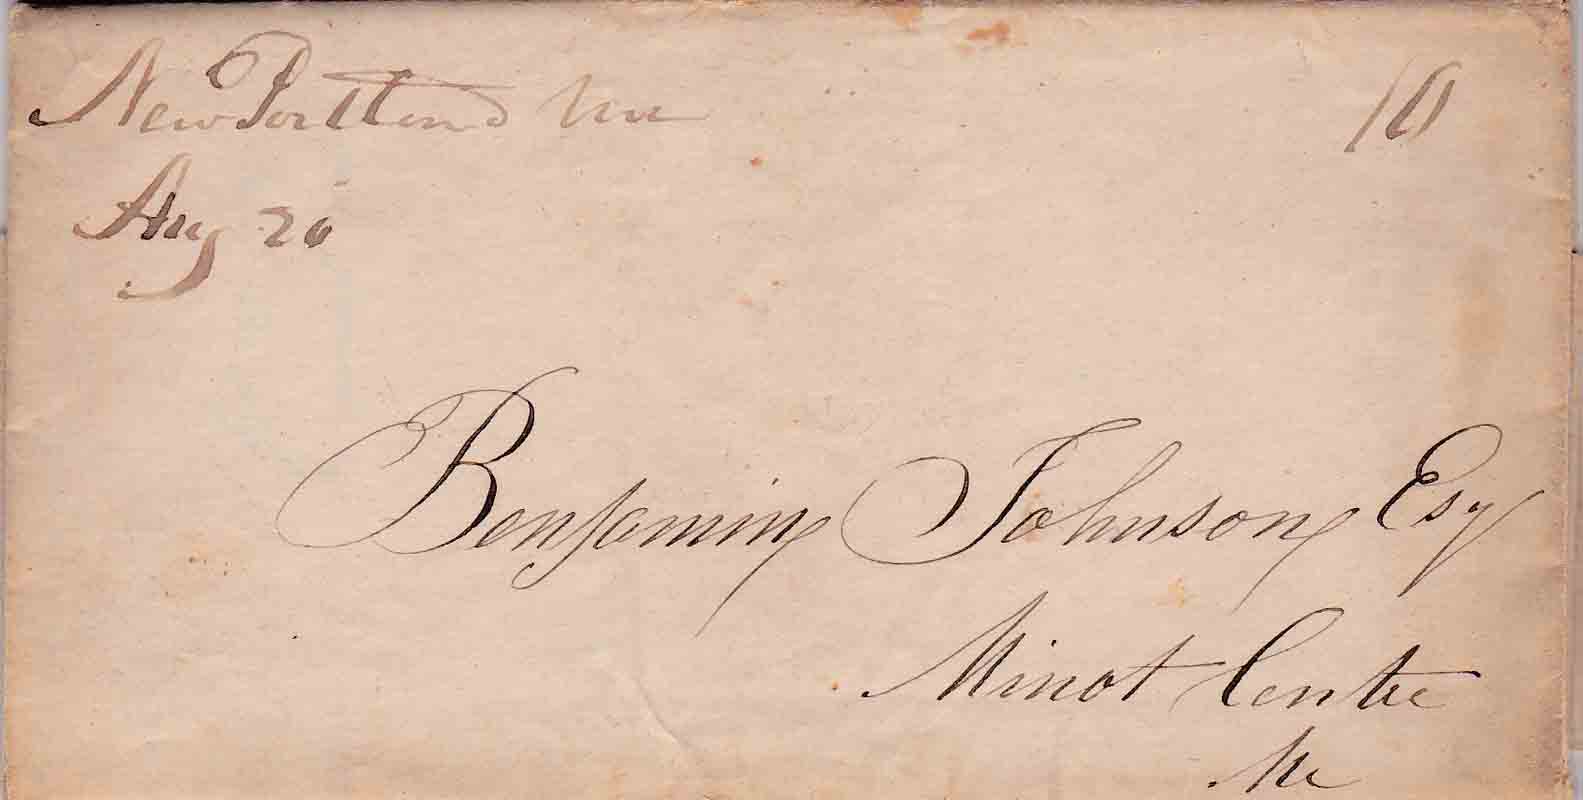 New Portland Me 10
Aug 26
Benjamin Johnson Esq
Minot Centre
Me